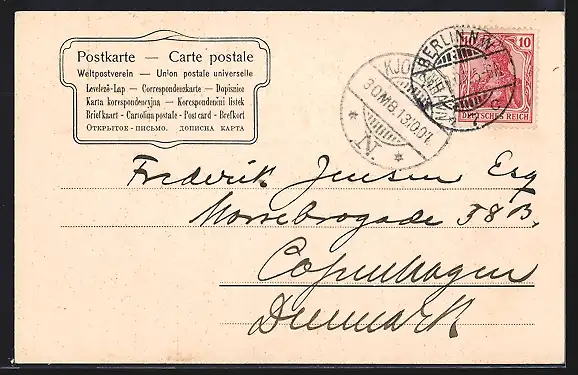 Postkarte — Carte postale
Weltpostverein — Union postale universelle
Levelezö-Lap — Correspondenzkarte — Dopisnice
Karta korespondencyjna — Korespondenční listek
Briefkaart - Cartolina postale - Post card - Brefkort
ОТКРЫТОЕ - ПИСЬМО. ДОПИСНА КАРТА
BERLIN.N.W.
10
DEUTSCHES REICH
KJØ
30MB.13.10.01.
N.
Frederik Jensen Esq
Copenhagen
Denmark